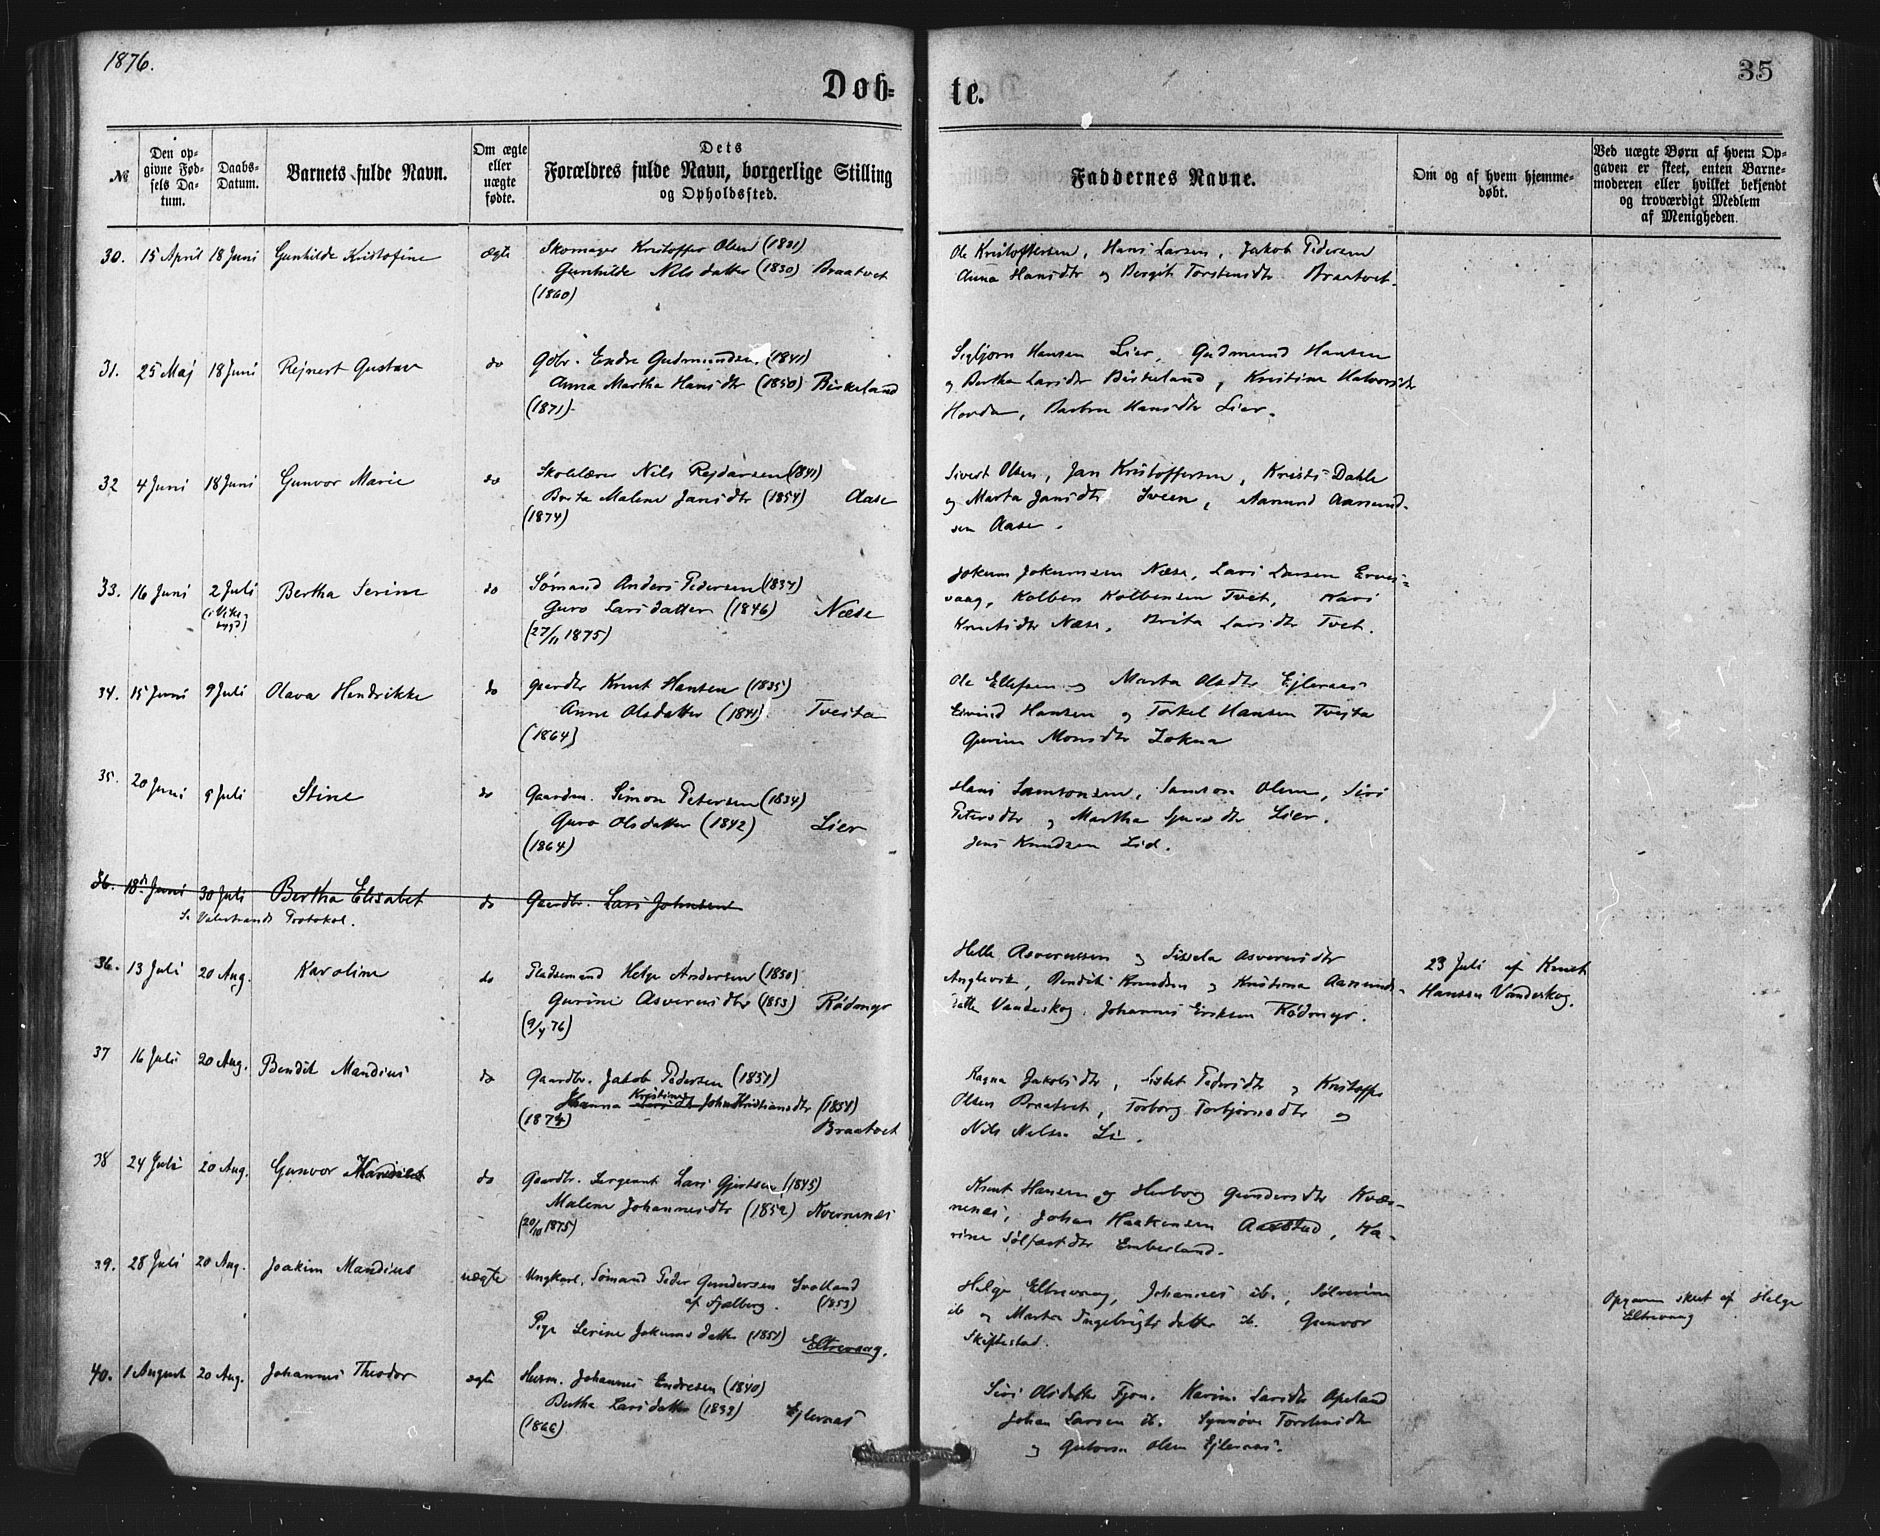 1876.
35
Døb=
te.
№
Den op-
givne Fød-
sels Da-
tum.
Daabs-
Datum.
Barnets fulde Navn.
Om ægte
eller
uægte
fødte.
Dets
Forældres fulde Navn, borgerlige Stilling
og Opholdssted.
Faddernes Navne.
Om og af hvem hjemme-
døbt.
Ved uægte Børn af hvem Op-
gaven er skeet, enten Barne-
moderen eller hvilket bekjendt
og troværdigt Medlem
af Menigheden.
30. 15 April 18 Juni Gunhilde Kristofine ægte Skomager Kristoffer Olsen (1831)
Gunhilde Nilsdatter (1830) Braatvet
(1860)
Ole Kristoffersen, Hans Larsen, Jakob Pedersen
Anna Hansdtr og Bergit Torstensdtr Braatvet.
31. 25 Maj 18 Juni Rejnert Gustav do Gdbr. Endre Gudmundsen (1841)
Anna Martha Hansdtr (1850) Birkeland
(1871)
Sigbjørn Hansen Lier, Gudmund Hansen
og Bertha Larsdtr Birkeland, Kristine Halvorsdtr
Hovda, Barbra Hansdtr Lier.
32 4 Juni 18 Juni Gunvor Marie do Skolelærer Nils Rejdarsen (1841)
Berta Malene Jansdtr (1854) Aase
(1874)
Sivert Olsen, Jan Kristoffersen, Kristi Dahle
og Marta Jansdtr Sveen, Aamund Aamund-
sen Aase.
33. 16 Juni 2 Juli Bertha Serine do Sømand Anders Pedersen (1834)
(i Vike-
bygd)
Guro Larsdatter (1846) Næse
(27/11 1875)
Jokum Jokumsen Næse, Lars Larsen Erves-
vaag, Kolben Kolbensen Tvet, Kari
Knutsdtr Næse, Brita Larsdtr Tvet.
34. 15 Juni 9 Juli Olava Hendrikke do Gaardbr Knut Hansen (1835)
Anne Olsdatter (1841) Tveita
(1864)
Ole Ellefsen og Marta Olsdtr Ejleraas
Eivind Hansen og Torkel Hansen Tvejta
Gurine Monsdtr Lokna
35. 20 Juni 9 Juli Stine do Gaardm. Simon Petersen (1834)
Guro Olsdatter (1842) Lier
(1864)
Hans Samsonsen, Samson Olsen, Siri
Petersdtr og Martha Dtr Lier.
Jens Knudsen Lid.
36. 18 Juni 30 Juli Bertha Elisabet do Gaardbr. Lars Johnsen
Se Valestrands Protokol.
36. 13 Juli 20 Aug. Karoline do Pladsemand Helge Andersen (1850)
Gurine Asversdtr (1853) Rødmyr
(9/4 76)
Helle Asversen og Sissela Asversdtr
Anglevik, Bendik Knudsen og Kristina Aamunds-
datter Vandeskog. Johannes Eriksen Rødmyr.
23 Juli af Knut
Hansen Vandeskog.
37 16 Juli 20 Aug. Bendik Mandius do Gaardbr. Jakob Pedersen (1851)
Johanna Kristine Kristiansdtr (1854)
(1874) Braatvet
Ragna Jakobsdtr, Pedersdtr og Kristoffer
Olsen Braatvet, Torborg Torbjørnsdtr og
Nils Nelsen Li.
38 24 Juli 20 Aug. Gunvor do Gaardbr. Sergeant Lars Gjertsen (1845)
Malene Johannesdtr (1852) Kvernenæs
(20/10 1875)
Knut Hansen og Herborg Gundersdtr Kvær-
nenæs, Johan Haakensen Aarstad, Ka-
rine Sølfæstdtr Emberland.
39. 28 Juli 20 Aug. Joakim Mandius uægte Ungkarl, Sømand Peder Gundersen Svolland
af Fjelberg. (1853)
Pige Serine Jokumsdatter (1851) Eltrevaag.
Helge Eltrevaag, Johannes ib., Sølverine
ib og Marta Ingebrigtsdatter ib. Gunvor
Skiftestad.
Opgaven skeet af Helge
Eltrevaag
40. 1 August 20 Aug. Johannes Theodor ægte Husm. Johannes Endresen (1840)
Bertha Larsdatter (1832) Ejleraas
(1866)
Siri Olsdatter Fjon. Karine Larsdtr Apeland
Johan Larsen ib. Synnøve Torstensdtr
og Olsen Ejleraas.